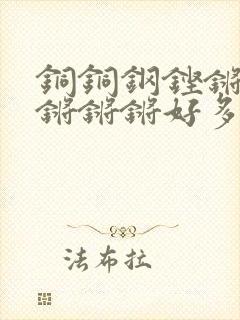 銅銅鋼鏗鏘
鏘鏘鏘好多
法布拉